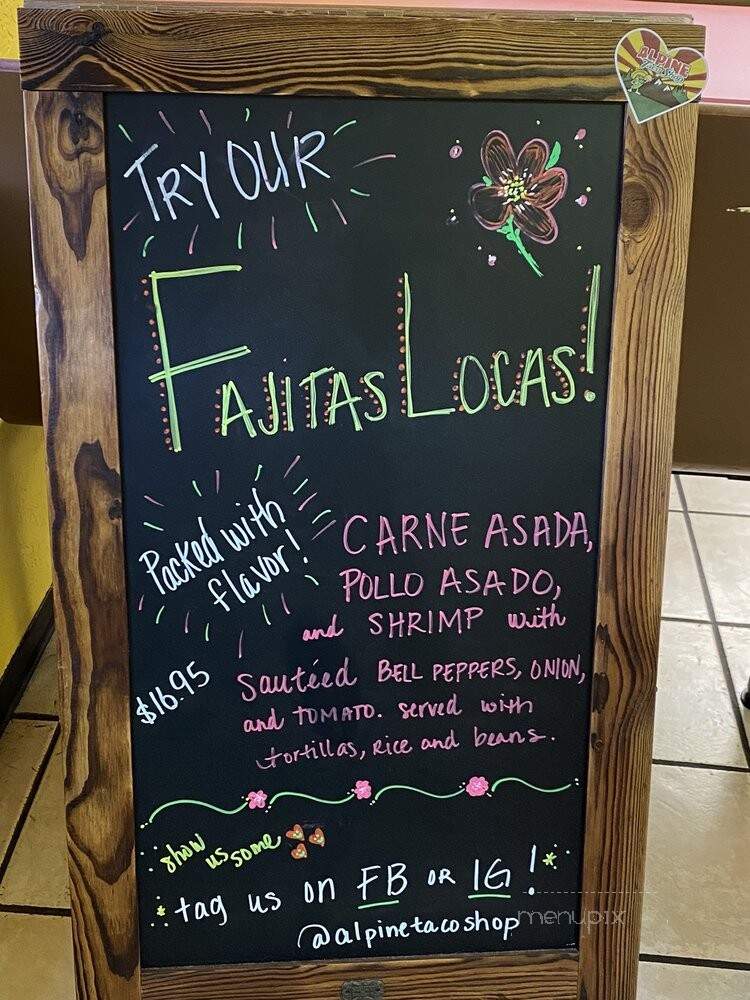 ALPINE
Taco Shop
TRY OUR
FAJITAS LOCAS!
Packed with
flavor!
CARNE ASADA,
POLLO ASADO,
and SHRIMP with
$16.95
Sautéed BELL PEPPERS, ONION,
and TOMATO. served with
tortillas, rice and beans.
show
us some
tag us on FB OR IG!
@alpinetacoshop
menupix